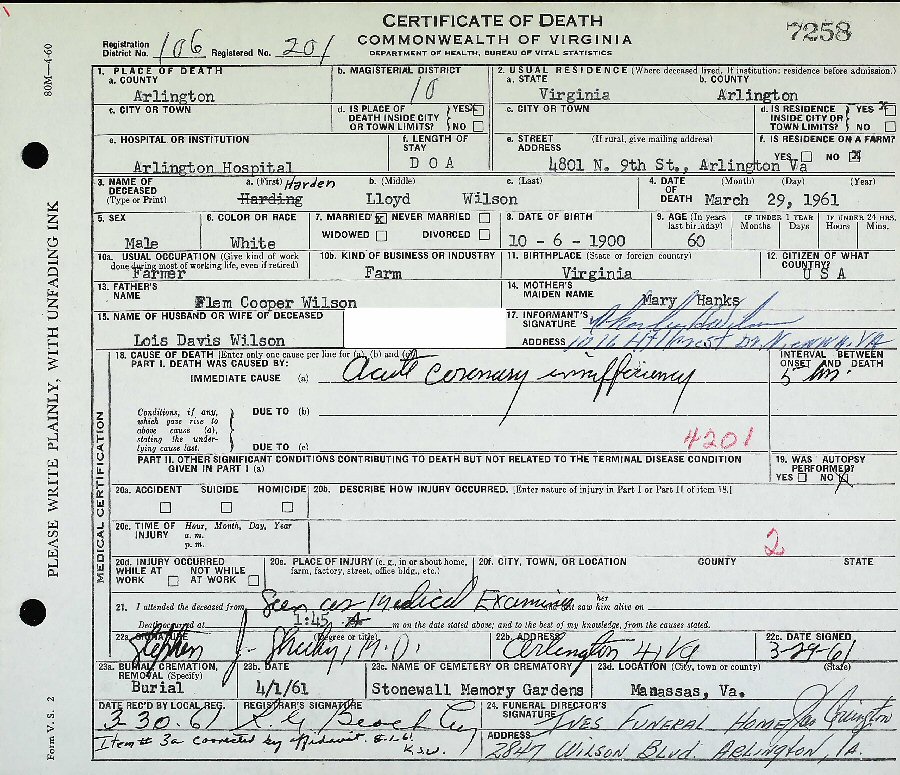 CERTIFICATE OF DEATH
COMMONWEALTH OF VIRGINIA
DEPARTMENT OF HEALTH, BUREAU OF VITAL STATISTICS
7258
Registration District No. 106 Registered No. 201
80M—4-60
PLEASE WRITE PLAINLY, WITH UNFADING INK
Form V. S. 2
1. PLACE OF DEATH
a. COUNTY
Arlington
b. MAGISTERIAL DISTRICT
10
2. USUAL RESIDENCE (Where deceased lived. If institution: residence before admission.)
a. STATE
Virginia
b. COUNTY
Arlington
c. CITY OR TOWN
d. IS PLACE OF DEATH INSIDE CITY OR TOWN LIMITS? YES X NO
c. CITY OR TOWN
d. IS RESIDENCE INSIDE CITY OR TOWN LIMITS? YES X NO
e. HOSPITAL OR INSTITUTION
Arlington Hospital
f. LENGTH OF STAY
D O A
e. STREET ADDRESS (If rural, give mailing address)
4801 N. 9th St., Arlington Va
f. IS RESIDENCE ON A FARM?
YES NO X
3. NAME OF DECEASED (Type or Print)
a. (First) Harden
Harding
b. (Middle)
Lloyd
c. (Last)
Wilson
4. DATE OF DEATH (Month) (Day) (Year)
March 29, 1961
5. SEX
Male
6. COLOR OR RACE
White
7. MARRIED X NEVER MARRIED
WIDOWED DIVORCED
8. DATE OF BIRTH
10 - 6 - 1900
9. AGE (In years last birthday)
60
IF UNDER 1 YEAR Months Days
IF UNDER 24 HRS. Hours Mins.
10a. USUAL OCCUPATION (Give kind of work done during most of working life, even if retired)
Farmer
10b. KIND OF BUSINESS OR INDUSTRY
Farm
11. BIRTHPLACE (State or foreign country)
Virginia
12. CITIZEN OF WHAT COUNTRY?
U S A
13. FATHER'S NAME
Flem Cooper Wilson
14. MOTHER'S MAIDEN NAME
Mary Hanks
15. NAME OF HUSBAND OR WIFE OF DECEASED
Lois Davis Wilson
17. INFORMANT'S SIGNATURE
ADDRESS 1016 Hillcrest Dr. Vienna VA
MEDICAL CERTIFICATION
18. CAUSE OF DEATH [Enter only one cause per line for (a), (b) and (c)]
PART I. DEATH WAS CAUSED BY:
IMMEDIATE CAUSE (a) Acute coronary insufficiency
INTERVAL BETWEEN ONSET AND DEATH
5 hrs.
Conditions, if any, which gave rise to above cause (a), stating the underlying cause last.
DUE TO (b)
DUE TO (c)
4201
PART II. OTHER SIGNIFICANT CONDITIONS CONTRIBUTING TO DEATH BUT NOT RELATED TO THE TERMINAL DISEASE CONDITION GIVEN IN PART I (a)
19. WAS AUTOPSY PERFORMED?
YES NO X
20a. ACCIDENT SUICIDE HOMICIDE
20b. DESCRIBE HOW INJURY OCCURRED. [Enter nature of injury in Part I or Part II of item 18.]
20c. TIME OF INJURY Hour, Month, Day, Year
a. m.
p. m.
2
20d. INJURY OCCURRED
WHILE AT WORK NOT WHILE AT WORK
20e. PLACE OF INJURY (e. g., in or about home, farm, factory, street, office bldg., etc.)
20f. CITY, TOWN, OR LOCATION COUNTY STATE
21. I attended the deceased from Seen as Medical Examiner her saw him alive on
Death occurred at 1:45 A m on the date stated above; and to the best of my knowledge, from the causes stated.
22a. SIGNATURE (Degree or title)
Stephen J. M.D.
22b. ADDRESS
Arlington 4, Va
22c. DATE SIGNED
3-29-61
23a. BURIAL, CREMATION, REMOVAL (Specify)
Burial
23b. DATE
4/1/61
23c. NAME OF CEMETERY OR CREMATORY
Stonewall Memory Gardens
23d. LOCATION (City, town or county) (State)
Manassas, Va.
DATE REC'D BY LOCAL REG.
3-30-61
REGISTRAR'S SIGNATURE
24. FUNERAL DIRECTOR'S SIGNATURE Ives Funeral Home Arlington
ADDRESS 2847 Wilson Blvd. Arlington, Va.
Item # 3a corrected by affidavit